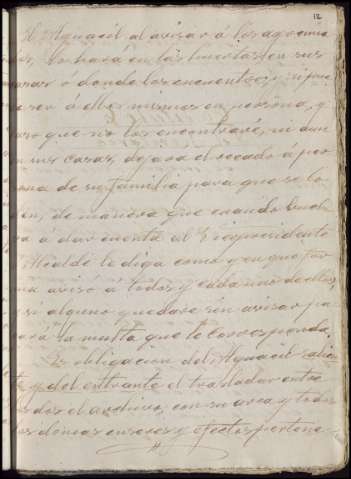 12
El Alguacil al avisar á los agremia
dos, lo hará en las huertas, en sus
casas ó donde los encuentre, y si pue
de ser á ellos mismos en persona, y
caso que no los encontrare, ni aun
en sus casas, dejara el recado á per
sona de su familia para que se lo
den, de manera que cuando vuelva
á dar cuenta al Vicepresidente
Alcalde le diga como y en que for
ma aviso á todos y cada uno de ellos,
y si alguno quedare sin avisar pa
gará la multa que le corresponda.
Es obligacion del Alguacil salien
te y del entrante el trasladar entre
los dos el archivo, con su arca y todos
los demas enseres y efectos pertene-